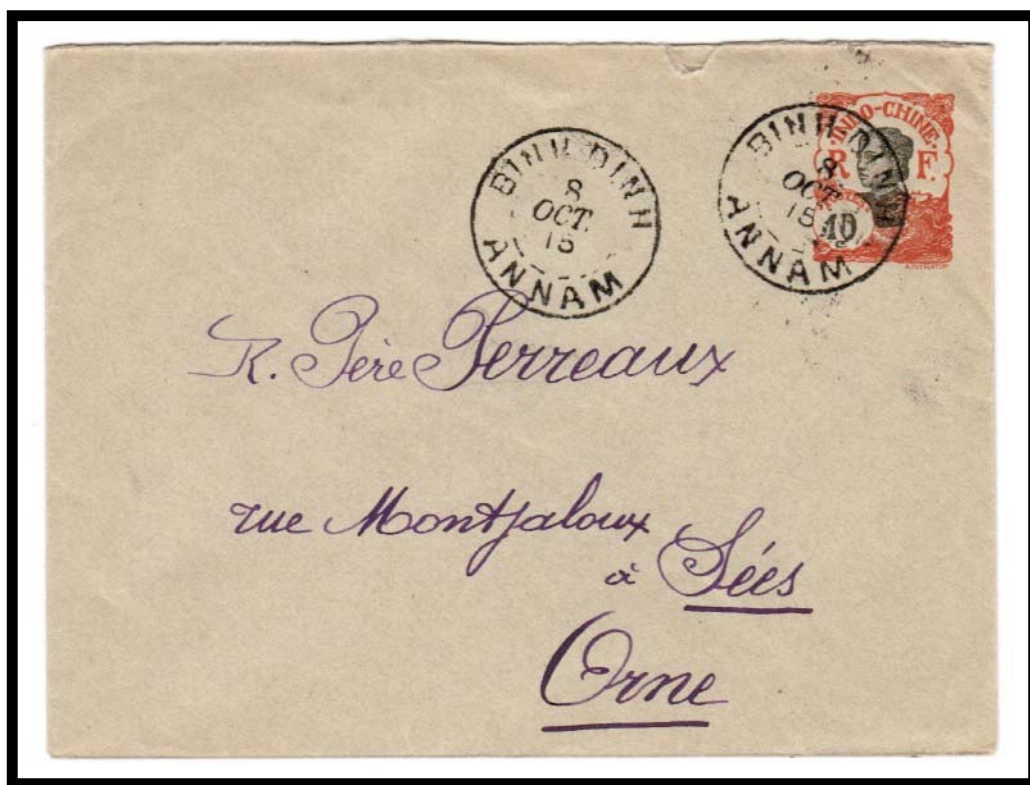 BINH-DINH
8
OCT.
15
ANNAM
BINH-DINH
8
OCT.
15
ANNAM
INDO-CHINE
R F.
10
R. Père Perreaux
rue Montjaloux
à Sées
Orne